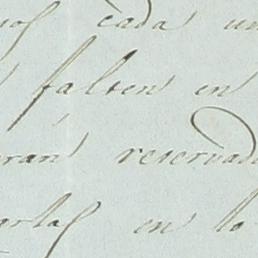 cada un
falten en
ran reservad
en lo